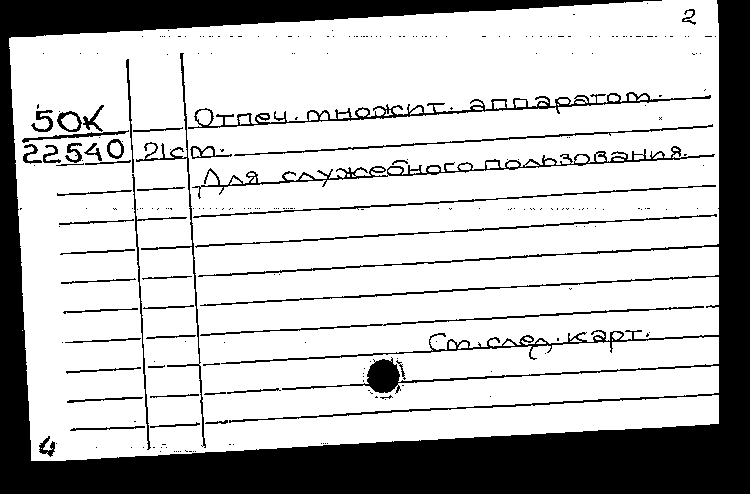 2
50К
Отпеч. множит. аппаратом.
22540 21см.
Для служебного пользования.
См. след. карт.
4